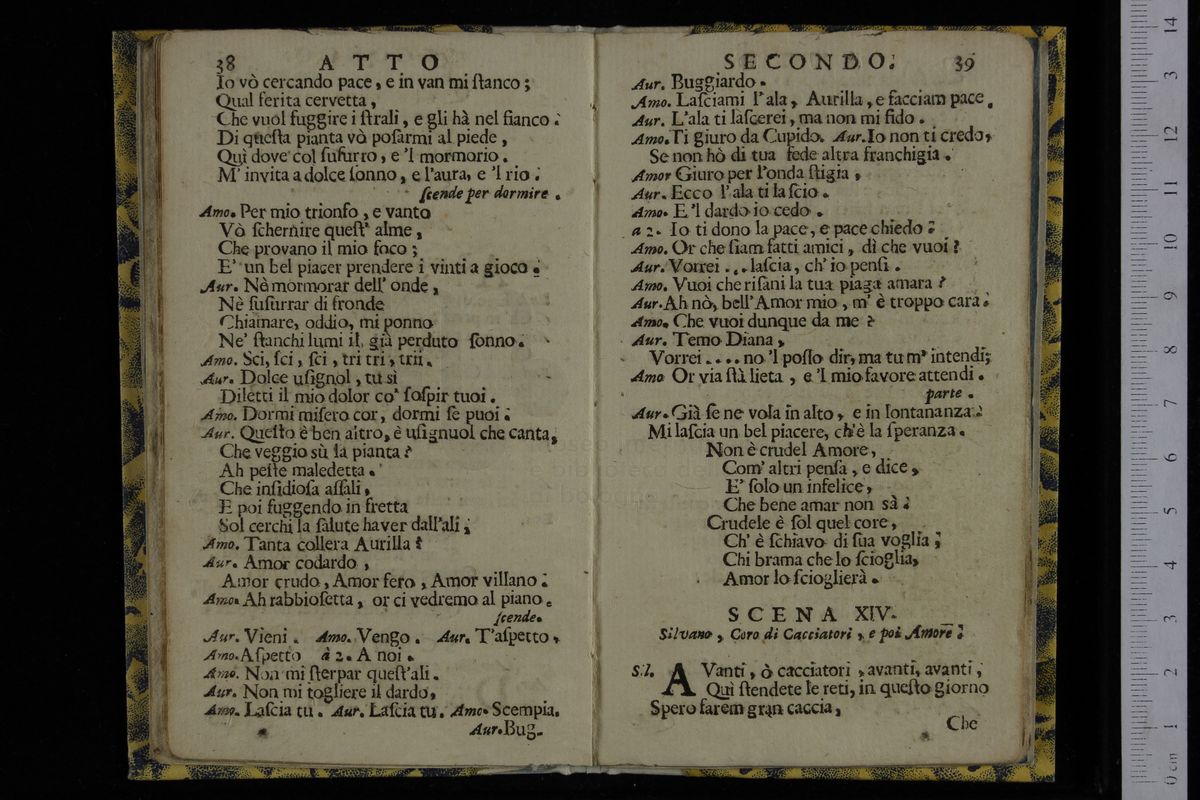 38 ATTO
Io vò cercando pace, e in van mi ſtanco;
Qual ferita cervetta,
Che vuol fuggire i ſtrali, e gli hà nel fianco.
Di queſta pianta vò poſarmi al piede,
Quì dove col ſuſurro, e 'l mormorio.
M' invita a dolce ſonno, e l'aura, e 'l rio.
ſcende per dormire.
Amo. Per mio trionfo, e vanto
Vò ſchernire queſt' alme,
Che provano il mio foco;
E' un bel piacer prendere i vinti a gioco.
Aur. Nè mormorar dell' onde,
Nè ſuſurrar di fronde
Chiamare, oddio, mi ponno
Ne' ſtanchi lumi il già perduto ſonno.
Amo. Sci, ſci, ſci, tri tri, trii.
Aur. Dolce uſignol, tu sì
Diletti il mio dolor co' ſoſpir tuoi.
Amo. Dormi miſero cor, dormi ſe puoi.
Aur. Queſto è ben altro, è uſignuol che canta,
Che veggio sù la pianta?
Ah peſte maledetta.
Che inſidioſa aſſali,
E poi fuggendo in fretta
Sol cerchi la ſalute haver dall'ali;
Amo. Tanta collera Aurilla?
Aur. Amor codardo,
Amor crudo, Amor fero, Amor villano.
Amo. Ah rabbioſetta, or ci vedremo al piano.
ſcende.
Aur. Vieni. Amo. Vengo. Aur. T'aſpetto,
Amo. Aſpetto à 2. A noi.
Amo. Non mi ſterpar queſt'ali.
Aur. Non mi togliere il dardo,
Amo. Laſcia tu. Aur. Laſcia tu. Amo. Scempia.
Aur. Bug-
SECONDO. 39
Aur. Buggiardo.
Amo. Laſciami l'ala, Aurilla, e facciam pace.
Aur. L'ala ti laſcerei, ma non mi fido.
Amo. Ti giuro da Cupido. Aur. Io non ti credo,
Se non hò di tua fede altra franchigia.
Amor Giuro per l'onda ſtigia,
Aur. Ecco l'ala ti laſcio.
Amo. E 'l dardo io cedo.
a 2. Io ti dono la pace, e pace chiedo.
Amo. Or che ſiam fatti amici, dì che vuoi?
Aur. Vorrei ... laſcia, ch' io penſi.
Amo. Vuoi che riſani la tua piaga amara?
Aur. Ah nò, bell'Amor mio, m' è troppo cara.
Amo. Che vuoi dunque da me?
Aur. Temo Diana,
Vorrei .... no 'l poſſo dir, ma tu m' intendi;
Amo Or via ſtà lieta, e 'l mio favore attendi.
parte.
Aur. Già ſe ne vola in alto, e in lontananza
Mi laſcia un bel piacere, ch'è la ſperanza.
Non è crudel Amore,
Com' altri penſa, e dice,
E' ſolo un infelice,
Che bene amar non sà.
Crudele è ſol quel core,
Ch' è ſchiavo di ſua voglia;
Chi brama che lo ſcioglia,
Amor lo ſcioglierà.
SCENA XIV.
Silvano, Coro di Cacciatori, e poi Amore.
Sil. AVanti, ò cacciatori, avanti, avanti,
Quì ſtendete le reti, in queſto giorno
Spero farem gran caccia,
Che